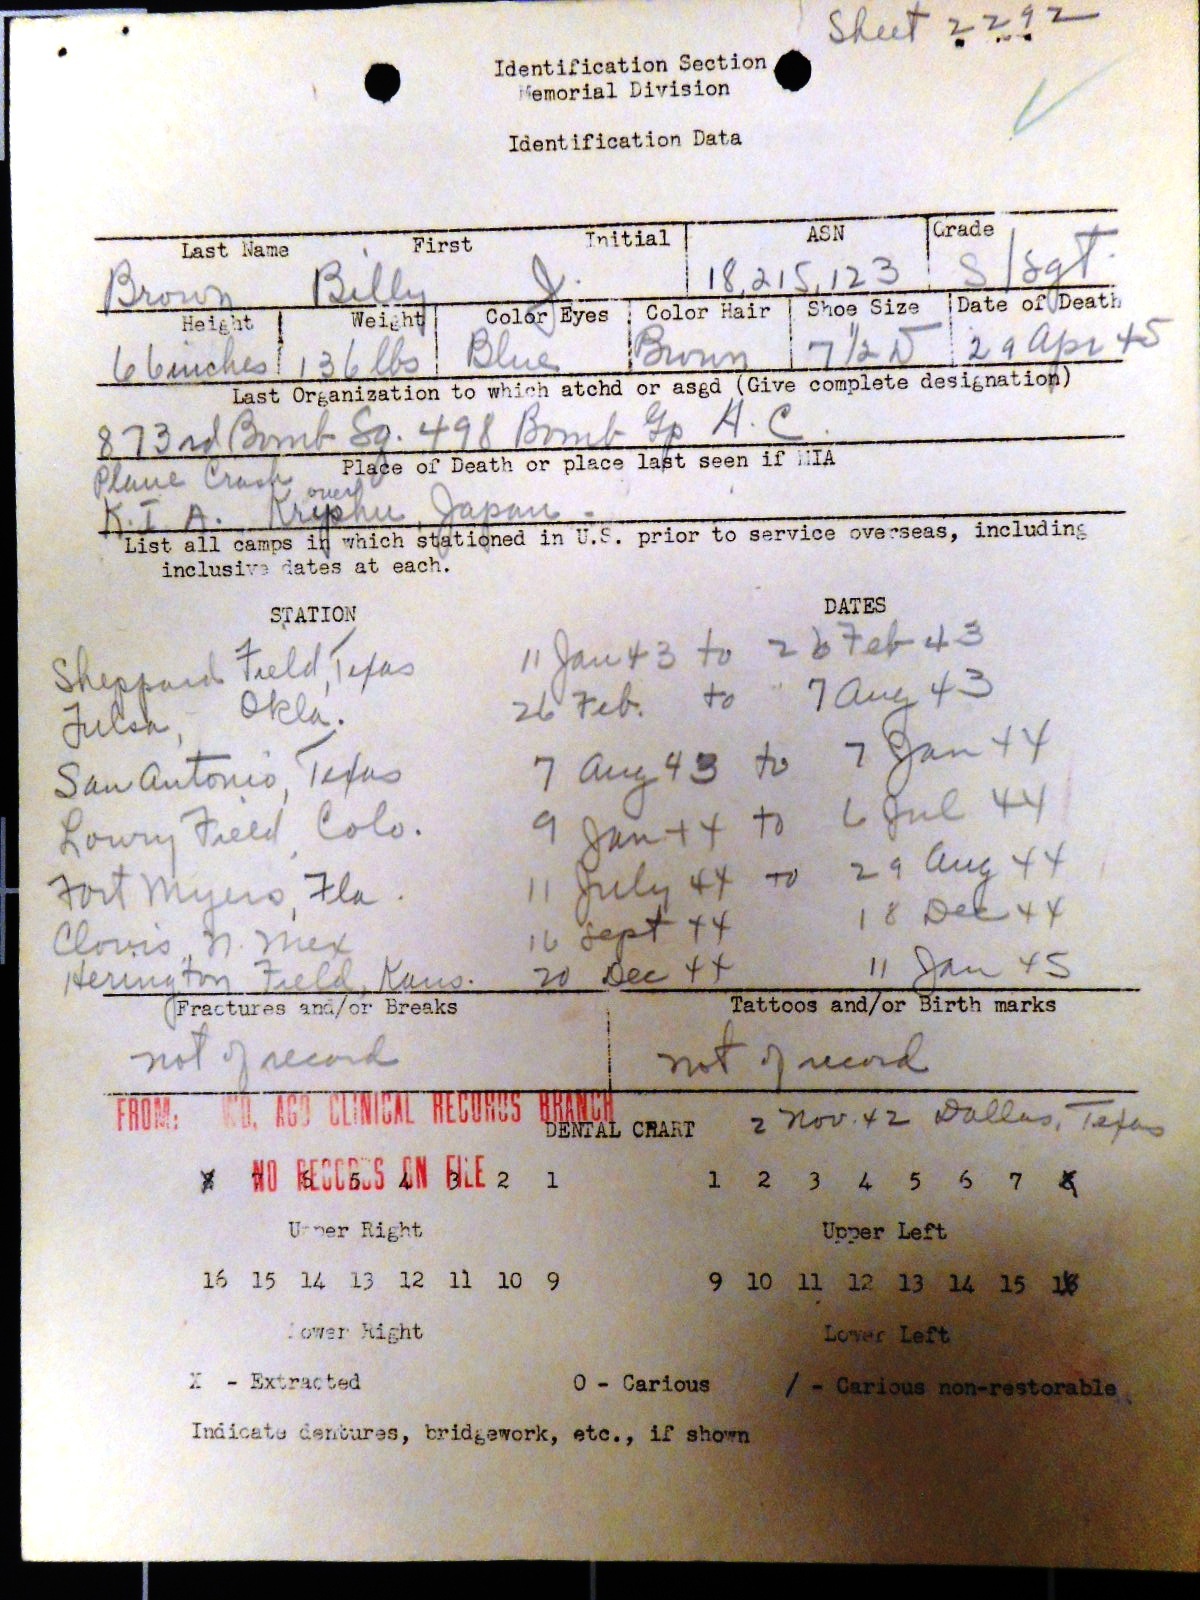 Sheet 2292
Identification Section
Memorial Division
Identification Data
Last Name First Initial ASN Grade
Brown Billy J. 18,215,123 S/Sgt.
Height Weight Color Eyes Color Hair Shoe Size Date of Death
66 inches 136 lbs Blue Brown 7 1/2 D 29 Apr 45
Last Organization to which atchd or asgd (Give complete designation)
873rd Bomb Sq. 498 Bomb Gp A.C.
Place of Death or place last seen if MIA
Plane Crash
over
K.I.A. Kyushu, Japan.
List all camps in which stationed in U.S. prior to service overseas, including
inclusive dates at each.
STATION DATES
Sheppard Field, Texas 11 Jan 43 to 26 Feb 43
Tulsa, Okla. 26 Feb. to 7 Aug 43
San Antonio, Texas 7 Aug 43 to 7 Jan 44
Lowry Field, Colo. 9 Jan 44 to 6 Jul 44
Fort Myers, Fla. 11 July 44 to 29 Aug 44
Clovis, N. Mex 16 Sept 44 18 Dec 44
Herington Field, Kans. 20 Dec 44 11 Jan 45
Fractures and/or Breaks Tattoos and/or Birth marks
not of record not of record
FROM: WD, AGO CLINICAL RECORDS BRANCH
DENTAL CHART 2 Nov. 42 Dallas, Texas
NO RECORDS ON FILE
8 7 6 5 4 3 2 1 1 2 3 4 5 6 7 8
Upper Right Upper Left
16 15 14 13 12 11 10 9 9 10 11 12 13 14 15 16
Lower Right Lower Left
X - Extracted O - Carious / - Carious non-restorable
Indicate dentures, bridgework, etc., if shown